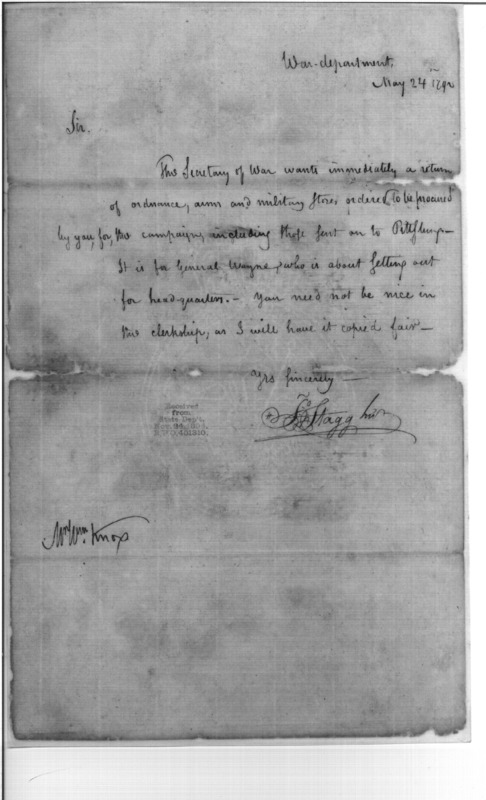 War-department.
May 24th 1792
Sir.
The Secretary of War wants immediately a return
of ordnance, arms and military Stores ordered to be procured
by you, for the campaign, including those sent on to Pittsburg—
It is for General Wayne, who is about setting out
for head-quarters.— You need not be nice in
the clerkship, as I will have it copied fair—
Yrs sincerely—
Jno Stagg Junr
Received
from
State Dept.
1894.
Mr Wm. Knox